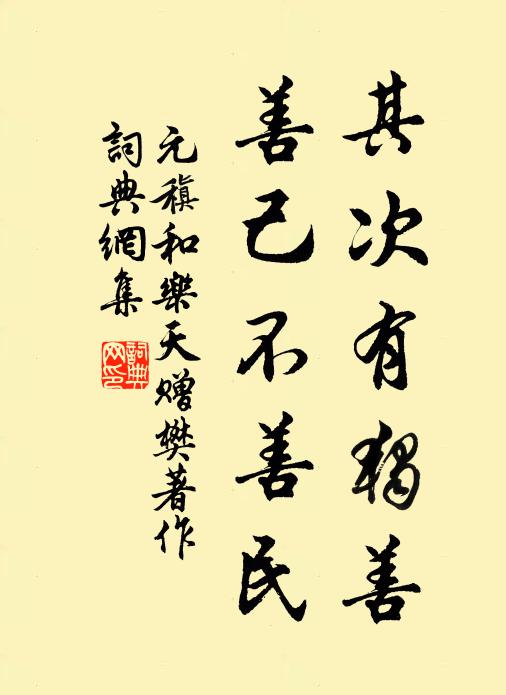 其次有獨善
善己不善民
元稹和樂天贈樊著作
詞典網集
詞典網印